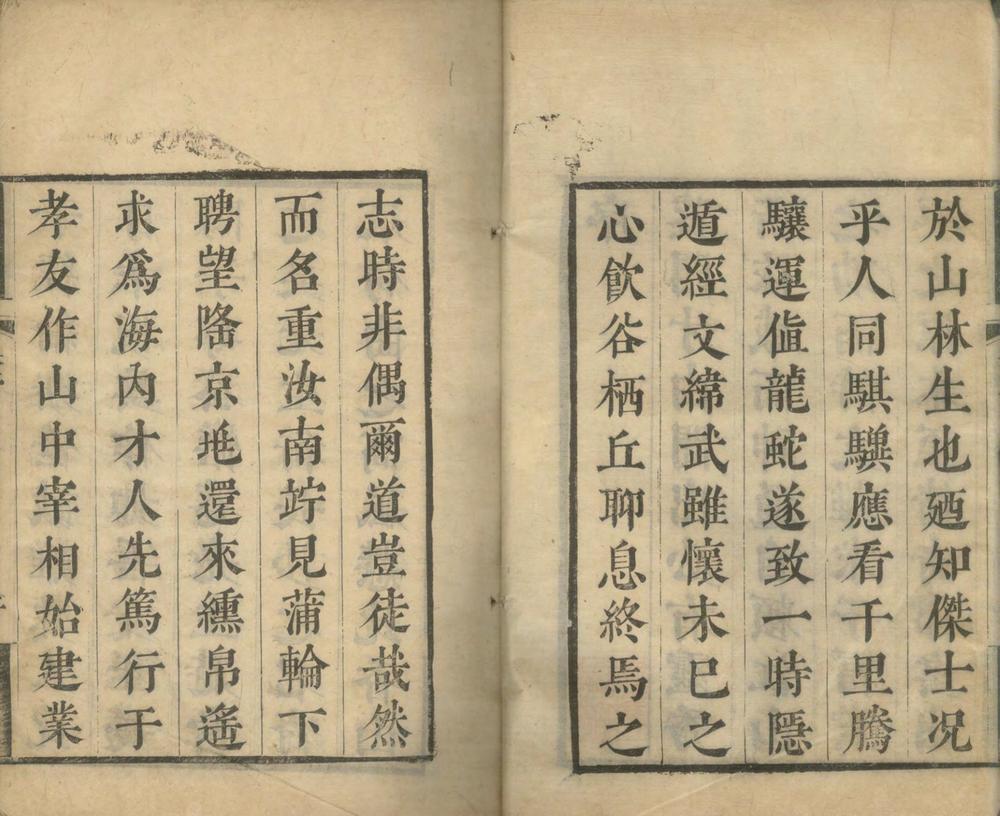 於山林生也廼知傑士况
乎人同騏驥應看千里騰
驤運值龍蛇遂致一時隱
遁經文緯武雖懷未已之
心飲谷栖丘聊息終焉之
志時非偶爾道豈徒哉然
而名重汝南竚見蒲輪下
聘望隆京兆還來纁帛遙
求爲海内才人先篤行于
孝友作山中宰相始建業